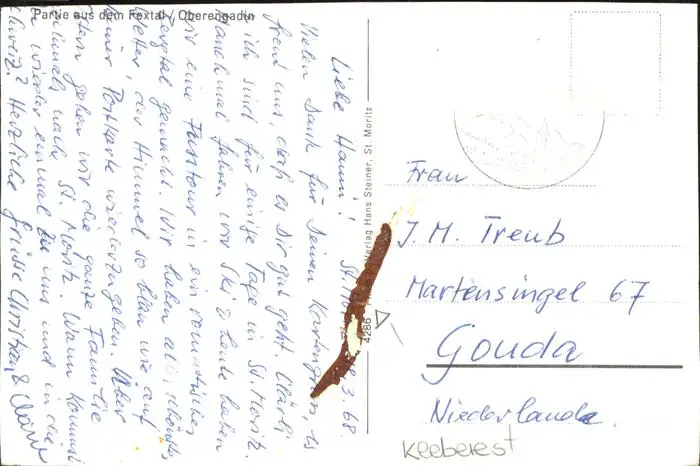 Partie aus dem Fextal / Oberengadin
Liebe Hanni! St. Mo 9.3.68.
Vielen Dank für Deinen Kartengruss, es
freut uns, dass es Dir gut geht. Clärli
+ ich sind für einige Tage in St. Moritz.
Manchmal fahren wir Ski & heute haben
wir eine Fusstour in ein romantisches
Bergtal gemacht. Wir haben all
Wetter, der Himmel so blau wie auf
einer Postkarte wiederzugeben. Über
Ostern gehen wir die ganze Familie
nochmals nach St. Moritz. Wann kommst
Du wieder einmal zu uns und in die
Schweiz? Herzliche Grüsse Christian &
Verlag Hans Steiner, St. Moritz
4286
Frau
J. M. Treub
Martensingel 67
Gouda
Niederlande.
Kleberest